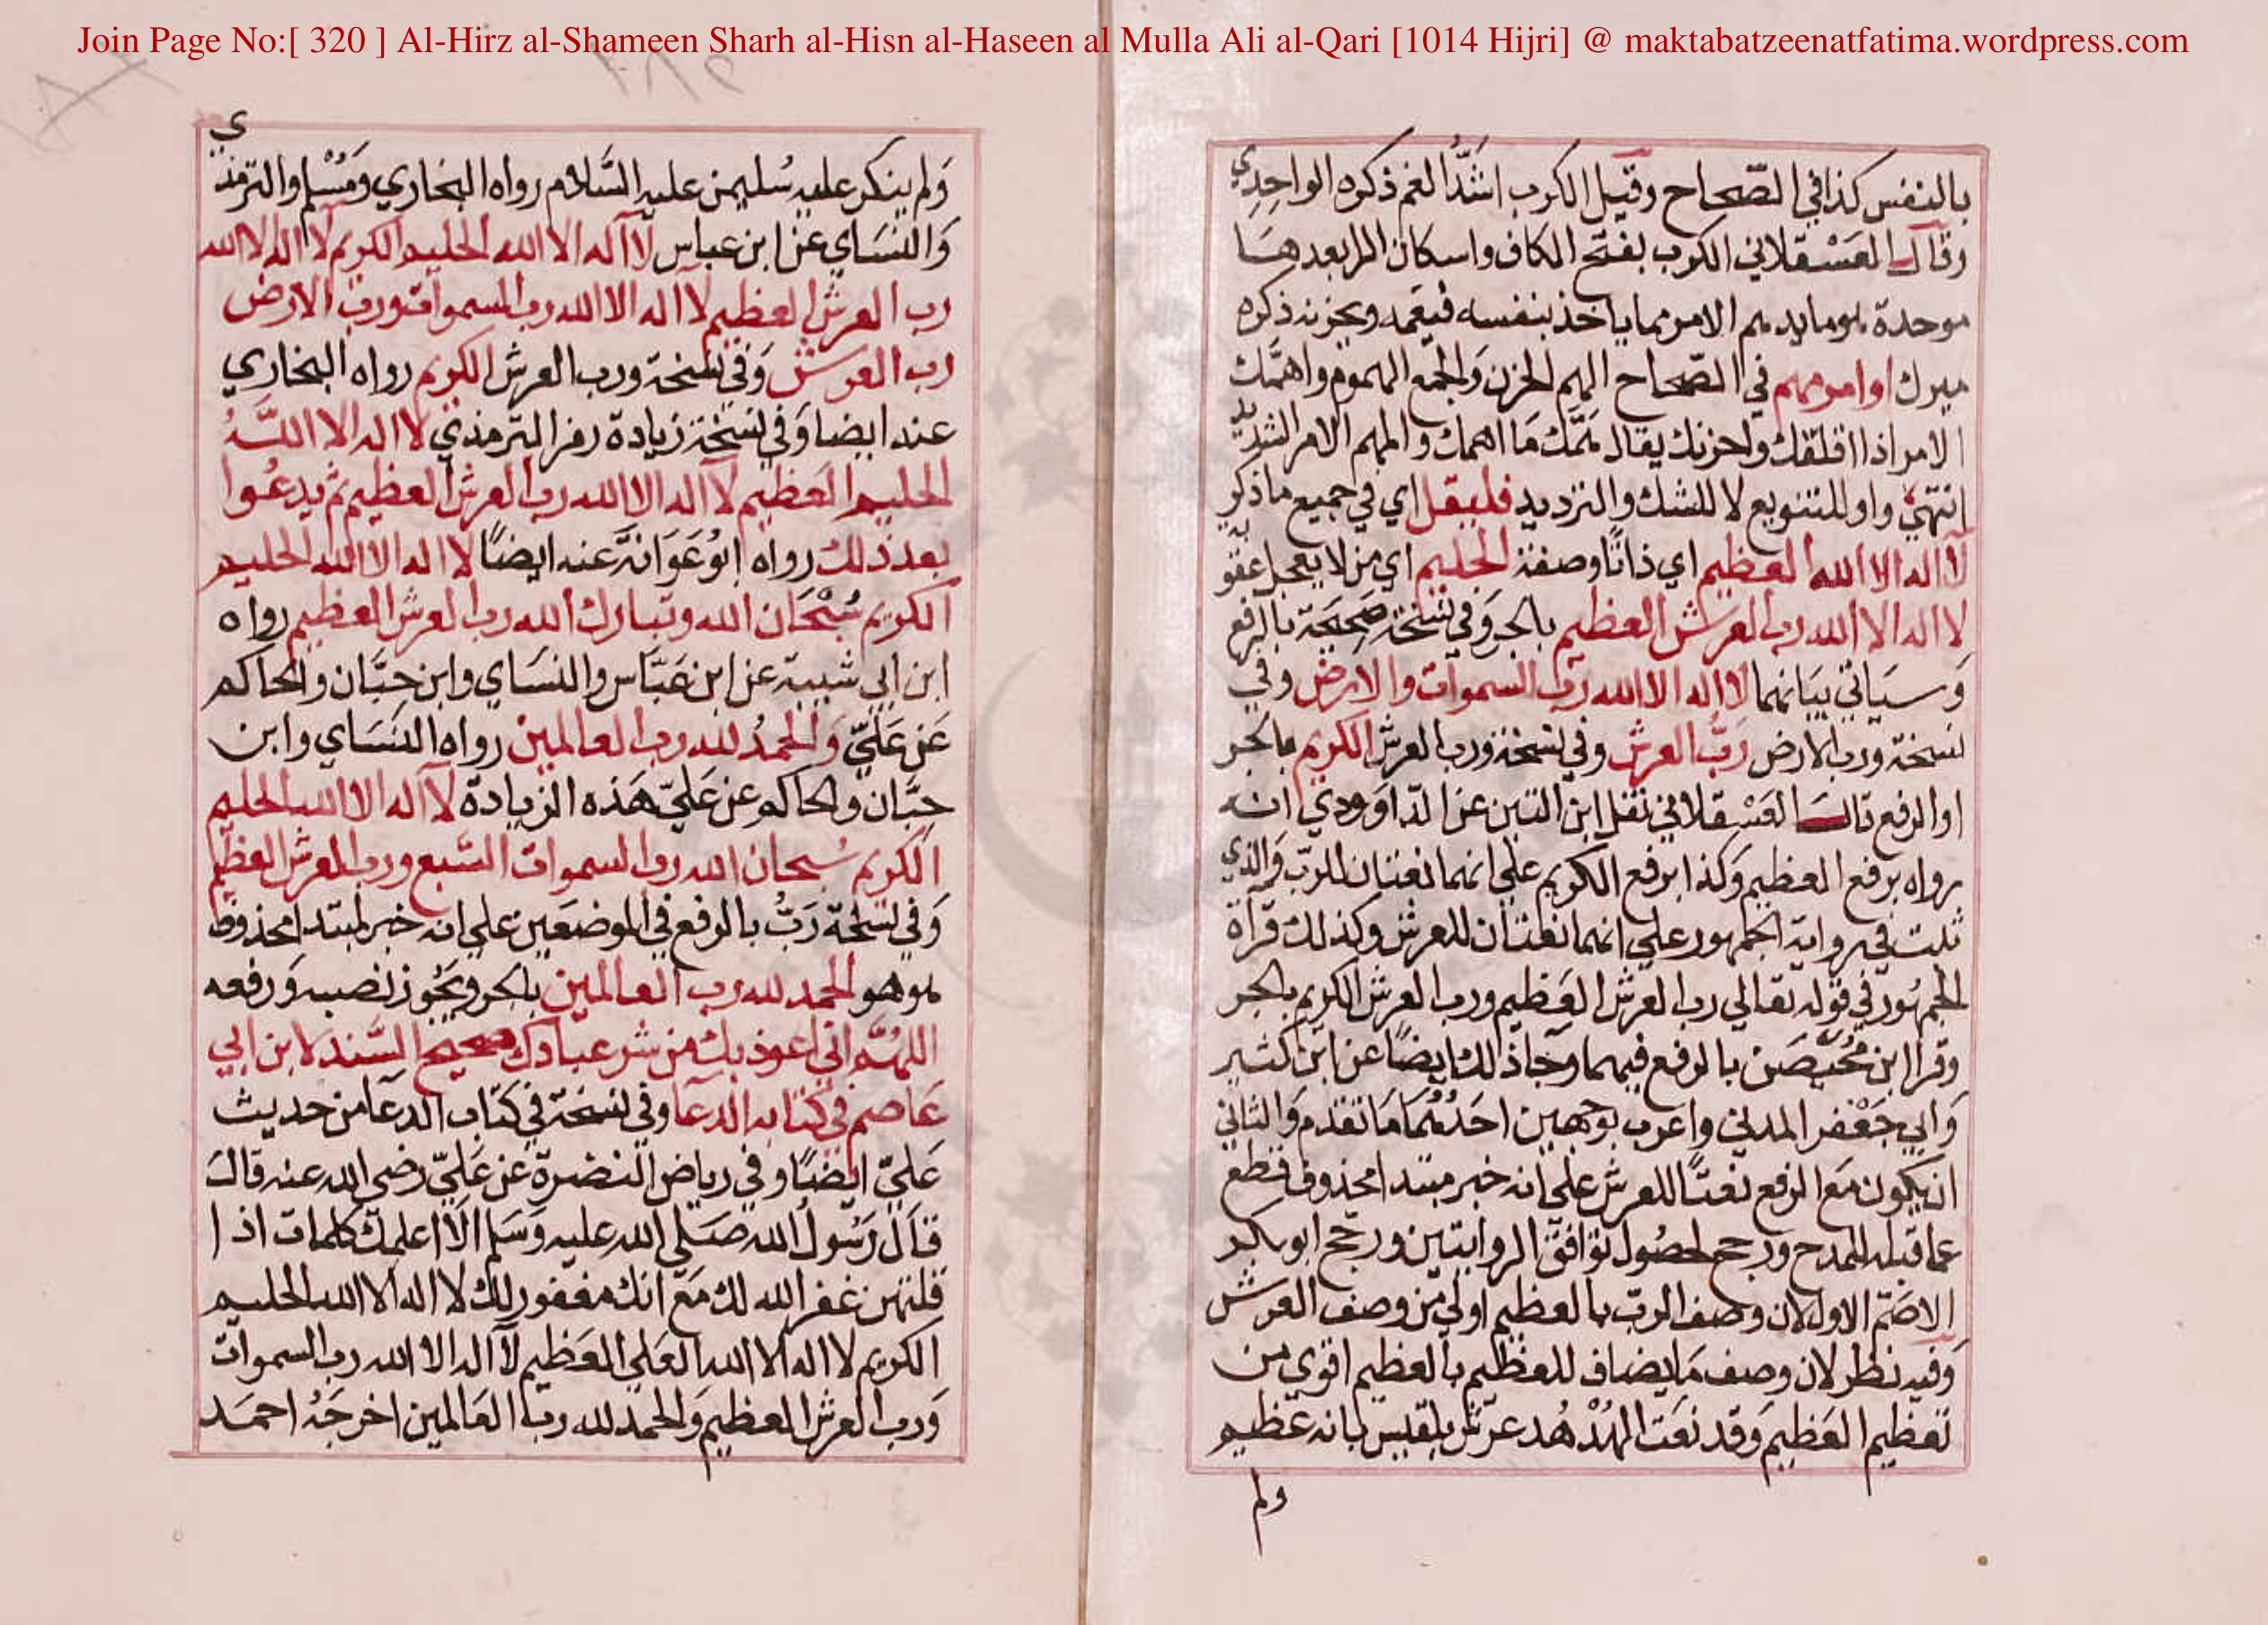 Join Page No:[ 320 ] Al-Hirz al-Shameen Sharh al-Hisn al-Haseen al Mulla Ali al-Qari [1014 Hijri] @ maktabatzeenatfatima.wordpress.com
بالنفس كذا في الصّحاح وقيل الكرب اشدُّ الغم ذكره الواحدي
وقال العَسْقلاني الكرب بفتح الكاف واسكان الرا بعدهَا
موحدة هو ما يدهم الامر مما ياخذ بنفسه فيغمه ويحزنه ذكره
ميرك او امر مهم في الصّحاح الهم الحزن وَالجمع الهموم واهمَّك
الامر اذا اقلقك واحزنك يقال هَمَّك مَا اهمك والمهم الامر الشديد
انتهيٰ واو للتنويع لا للشك والترديد فليقل اي في جميع ما ذكر
لا اله الا الله العظيم اي ذاتًا وصفة الحليم اي من لا يعجل عقوبة
لا اله الا الله رب العرش العظيم بالجر وَفي نسخة صحيحة بالرفع
وَسيَاتي بيَانهما لا اله الا الله رب السموات والارض وفي
نسخة ورب الارض رَبُّ العرش وفي نسخة ورب العرش الكريم بالجر
او الرفع قال العَسْقلاني نقل ابن التين عن الدّاوَودي انه
رواه برفع العظيم وَكذا برفع الكريم علي انهما نعتان للربّ وَالذي
ثبت في رواية الجمهور علي انهما نعتان للعرش وكذلك قرَاة
الجمهُور في قوله تعالي رب العرش العَظيم ورب العرش الكريم بالجر
وقرا ابن مُحيَّصَن بالرفع فيهما وَجا ذلك ايضًا عن ابن كثير
وَابي جَعْفر المدني واعرب بوجهين احَدُهُمَا مَا تقدم وَالثاني
ان يكون مَع الرفع نعتًا للعرش علي انه خبر مبتدا محذوف قطع
عما قبله للمدح ورجح لحصُول توَافق الروايتين ورجح ابو بكر
الاصَمّ الاول لان وصف الربّ بالعظيم اولي مِن وصف العرش
وَفيه نظر لان وصف مَا يضاف للعظيم بالعظيم اقوي من
تعظيم العَظيم وَقد نعَت الهُدْهُد عرش بلقيس بانه عَظيم
ولم
وَلم ينكر عليه سُليمن عليه السَّلام رواه البخاري وَمُسْلم والترمذي
وَالنسَاي عن ابن عباس لا اله الا الله الحليم الكريم لا اله الا الله
رب العرش العظيم لا اله الا الله رب السموات ورب الارض
رب العرش وَفي نسخة ورب العرش الكريم رواه البخاري
عنه ايضا وَفي نسخة زيادة رمز الترمذي لا اله الا اللهُ
الحليم العَظيم لا اله الا الله رب العرش العظيم ثم يدعُوا
بعد ذلك رواه ابُو عَوَانَة عنه ايضًا لا اله الا الله الحليم
الكريم سُبْحَان الله وتبارك الله رب العرش العظيم رواه
ابن ابي شيبة عن ابن عَبَّاس والنسَاي وابن حِبَّان والحاكم
عَن عَلَيّ وَالحمدُ لله رب العالمين رواه النسَاي وابن
حِبَّان والحاكم عن عَليّ هَذه الزيادة لا اله الا الله الحليم
الكريم سُبحان الله رب السموات السَّبع ورب العرش العظيم
وَفي نسخة رَبُّ بالرفع في الموضعَين علي انه خبر لمبتدا محذوف
هو هو الحمد لله رب العالمين بالجر ويَجُوز نصبه وَرفعه
اللهُمَّ اني اعوذ بك من شر عبادك صحيح السَّند لابن ابي
عَاصم في كتابه الدعَا وفي نسخة في كتاب الدعَا من حديث
عَليّ ايضًا وفي رياض النضرة عن عَليّ رضي الله عنه قالَ
قَالَ رَسُولُ الله صَلي الله عليه وَسَلم الاَ اعلمك كلمات اذا
قلتهن غفر الله لك مَعَ انك مغفور لك لا اله الا الله الحليم
الكريم لا اله الا الله العَلي العَظيم لا اله الا الله رب السموات
وَرب العرش العظيم وَالحمد لله ربّ العَالمين اخرجَهُ احمَد